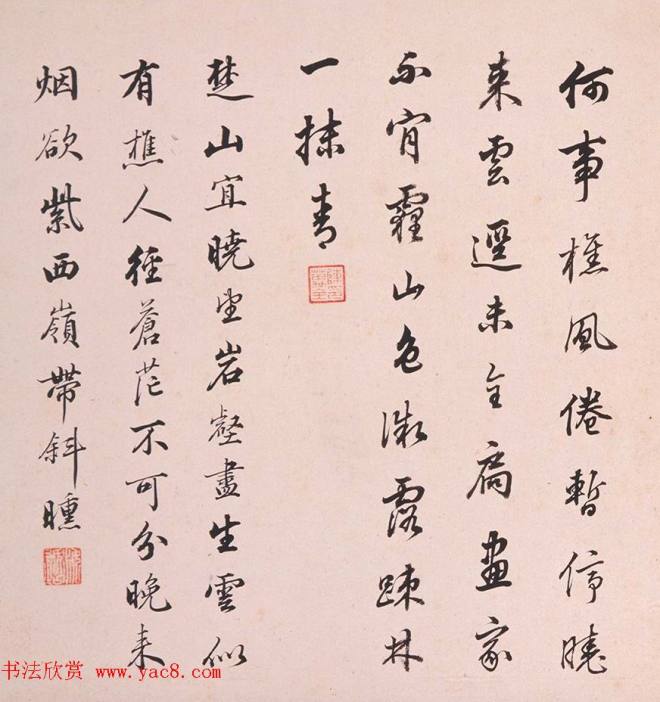 何事樵風倦暫停曉
来雲逕未全扃畫家
不肎霾山色微露踈林
一抹青
楚山宜曉望岩壑盡生雲似
有樵人徑蒼茫不可分晚来
烟欲紫西嶺帶斜曛
书法欣赏 www.yac8.com